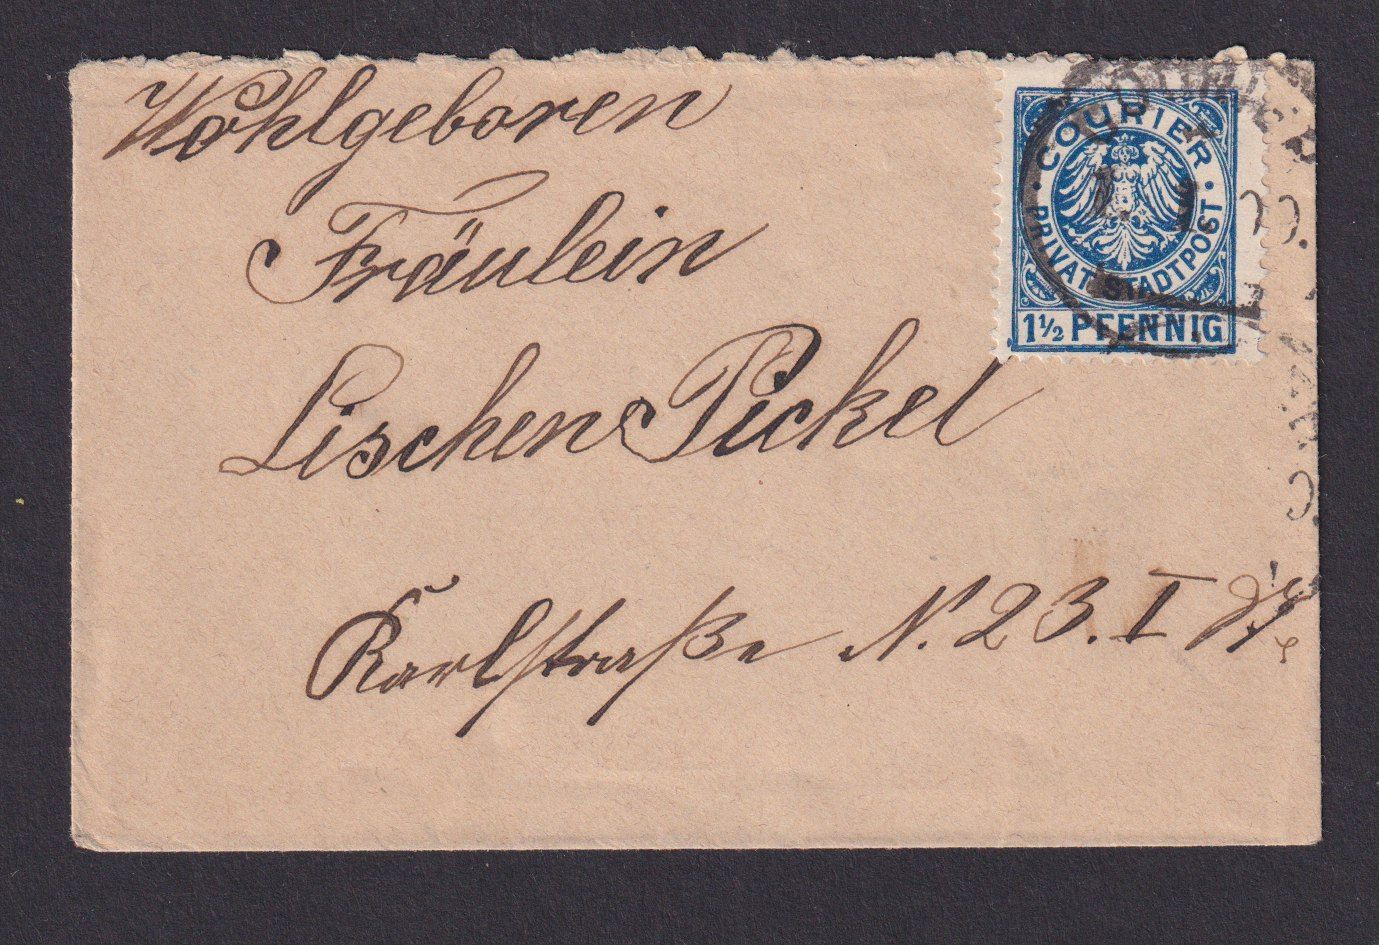 Wohlgeboren
Fräulein
Lischen Pickel
Karlstraße N. 23. I
COURIER
PRIVAT-STADTPOST
1½ PFENNIG